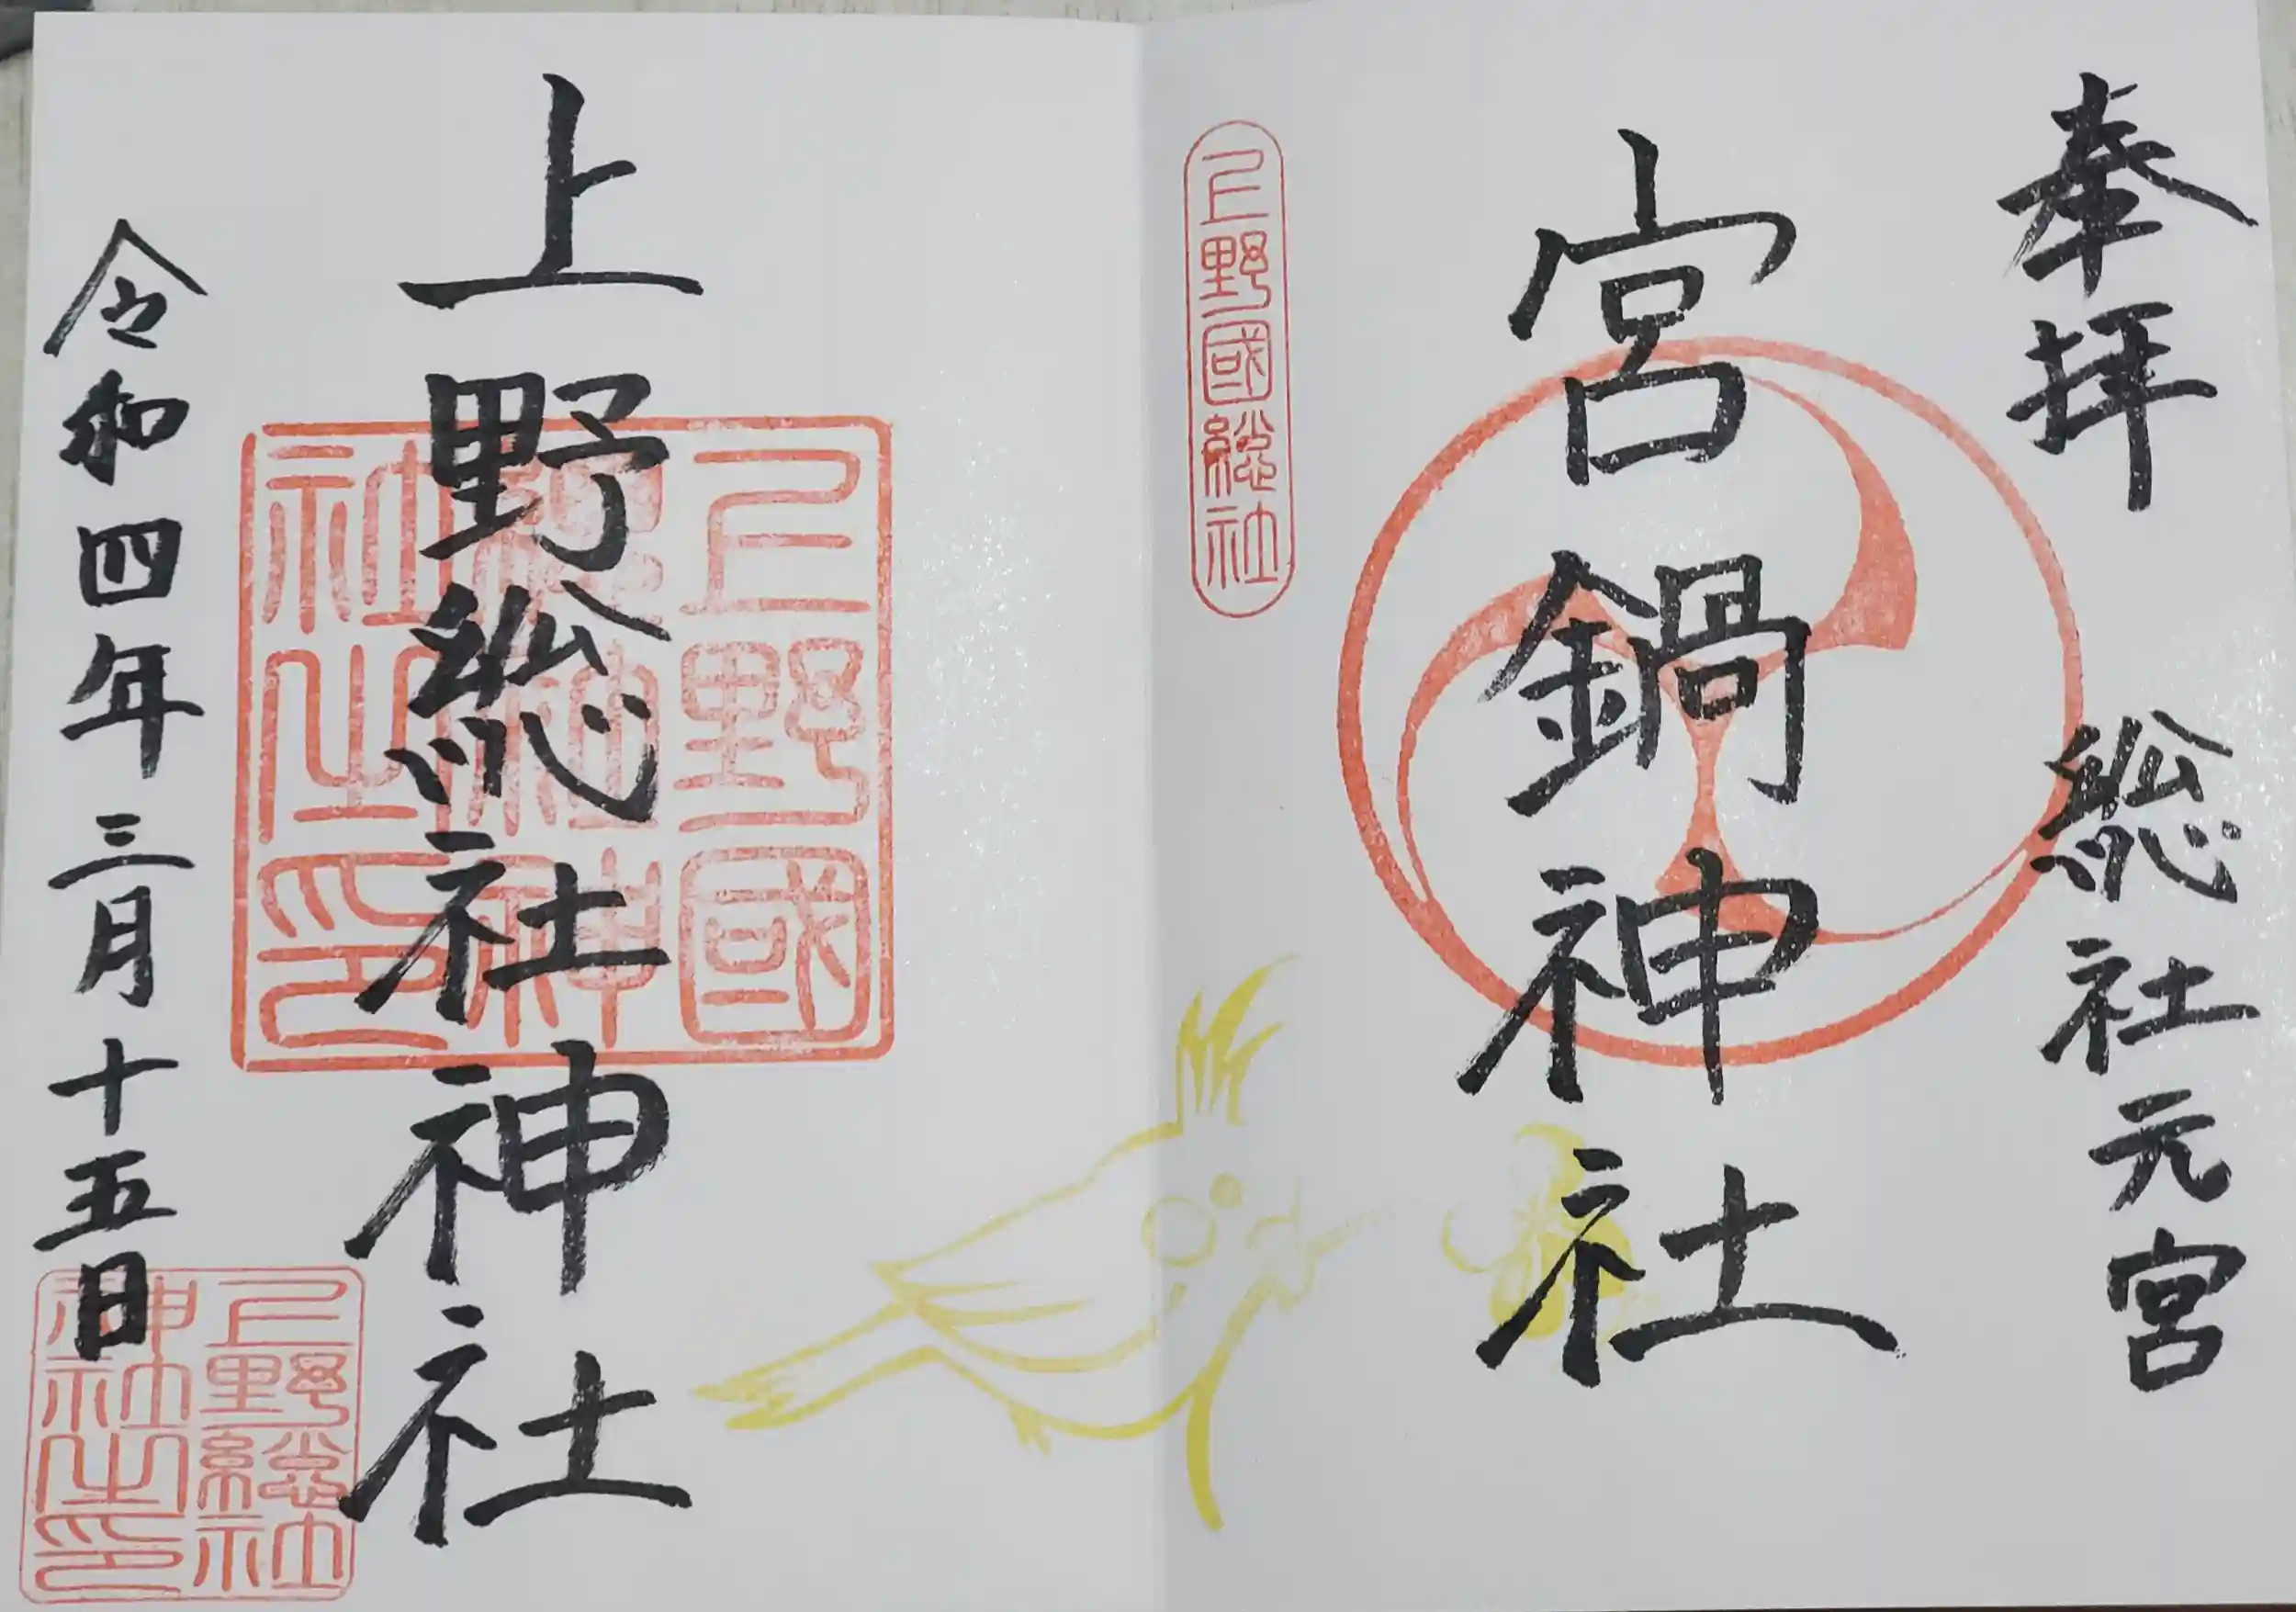 奉拝
総社元宮
宮鍋神社
上野國総社
上野総社神社
上野國
総社神
社之印
令和四年三月十五日
上野総社
神社之印